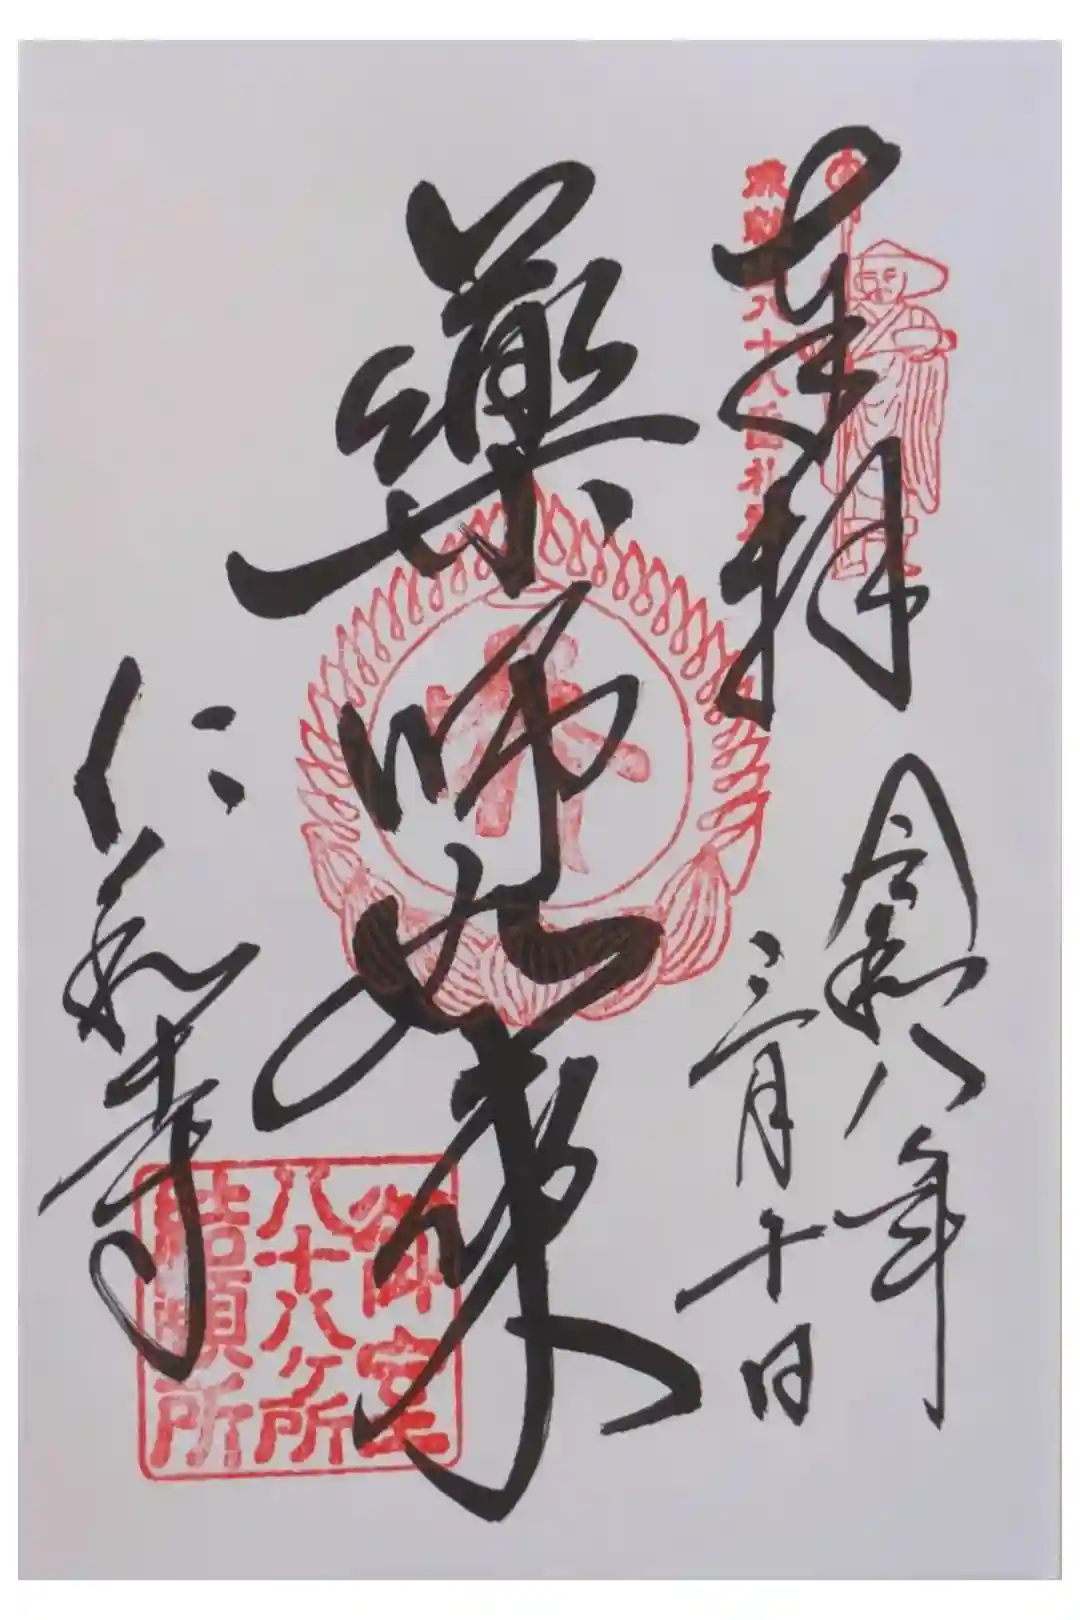 奉拝
令和八年
三月十日
藥師如来
仁和寺
御室
八十八ヶ所
結願所